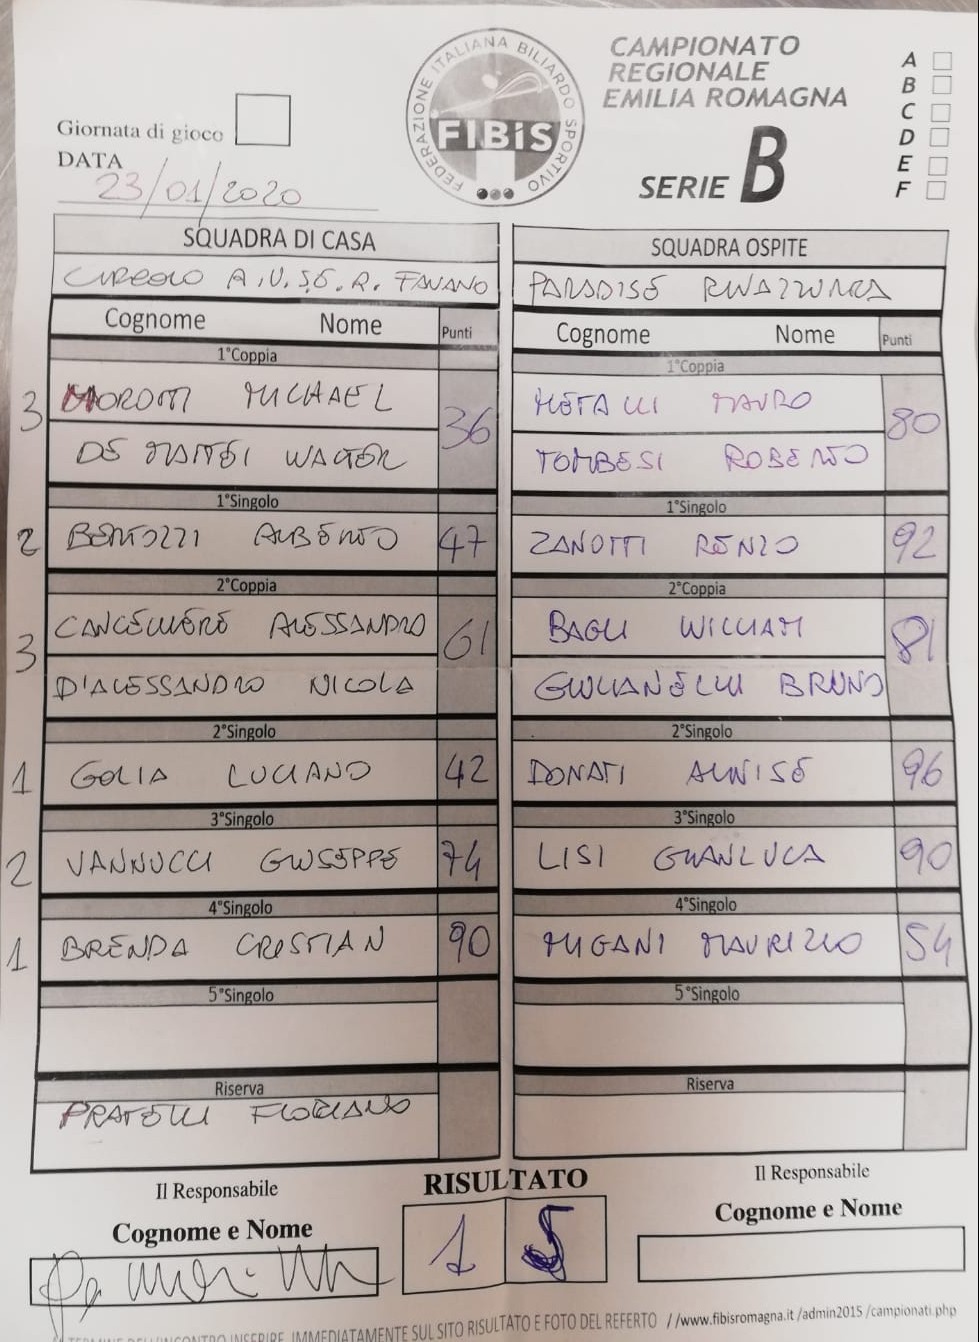 FEDERAZIONE ITALIANA BILIARDO SPORTIVO
FIBiS
CAMPIONATO
REGIONALE
EMILIA ROMAGNA
SERIE B
A
B
C
D
E
F
Giornata di gioco
DATA
23/01/2020
SQUADRA DI CASA
SQUADRA OSPITE
CIRCOLO A.U.S.E.R. FAVANO
PARADISE RIVAZZURRA
Cognome Nome Punti
Cognome Nome Punti
1°Coppia
1°Coppia
3 MOROTTI MICHAEL 36
METALLI MAURO 80
DE MATTEI WALTER
TOMBESI ROBERTO
1°Singolo
1°Singolo
2 BERTOZZI ALBERTO 47
ZANOTTI RENZO 92
2°Coppia
2°Coppia
3 CANCELLIERE ALESSANDRO 61
BAGLI WILLIAM 81
D'ALESSANDRO NICOLA
GIULIANELLI BRUNO
2°Singolo
2°Singolo
1 GOLIA LUCIANO 42
DONATI ALVISE 96
3°Singolo
3°Singolo
2 VANNUCCI GIUSEPPE 74
LISI GIANLUCA 90
4°Singolo
4°Singolo
1 BRENDA CRISTIAN 90
MIGANI MAURIZIO 54
5°Singolo
5°Singolo
Riserva
Riserva
PRATELLI FLORIANO
Il Responsabile
RISULTATO
Il Responsabile
Cognome e Nome
1 5
Cognome e Nome
TERMINE DELL'INCONTRO INSERIRE IMMEDIATAMENTE SUL SITO RISULTATO E FOTO DEL REFERTO //www.fibisromagna.it /admin2015 /campionati.php